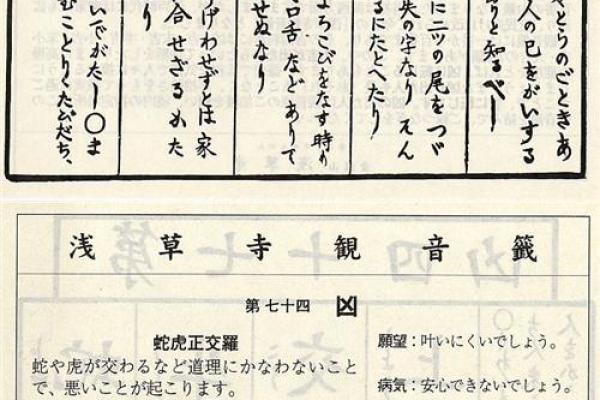 とうのごときあ
人の已をがいする
と知るべし
に二ツの尾をつゞ
の字なり えん
るにたとへたり
よろこびをなす時
口舌などありて
せぬなり
げわせずとは家
合せざる
り
いでがたし〇ま
たびだち、
浅草寺観音籤
第七十四 凶
蛇虎正交羅
蛇や虎が交わるなど道理にかなわないこと
で、悪いことが起こります。
願望：叶いにくいでしょう。
病気：安心できないでしょう。